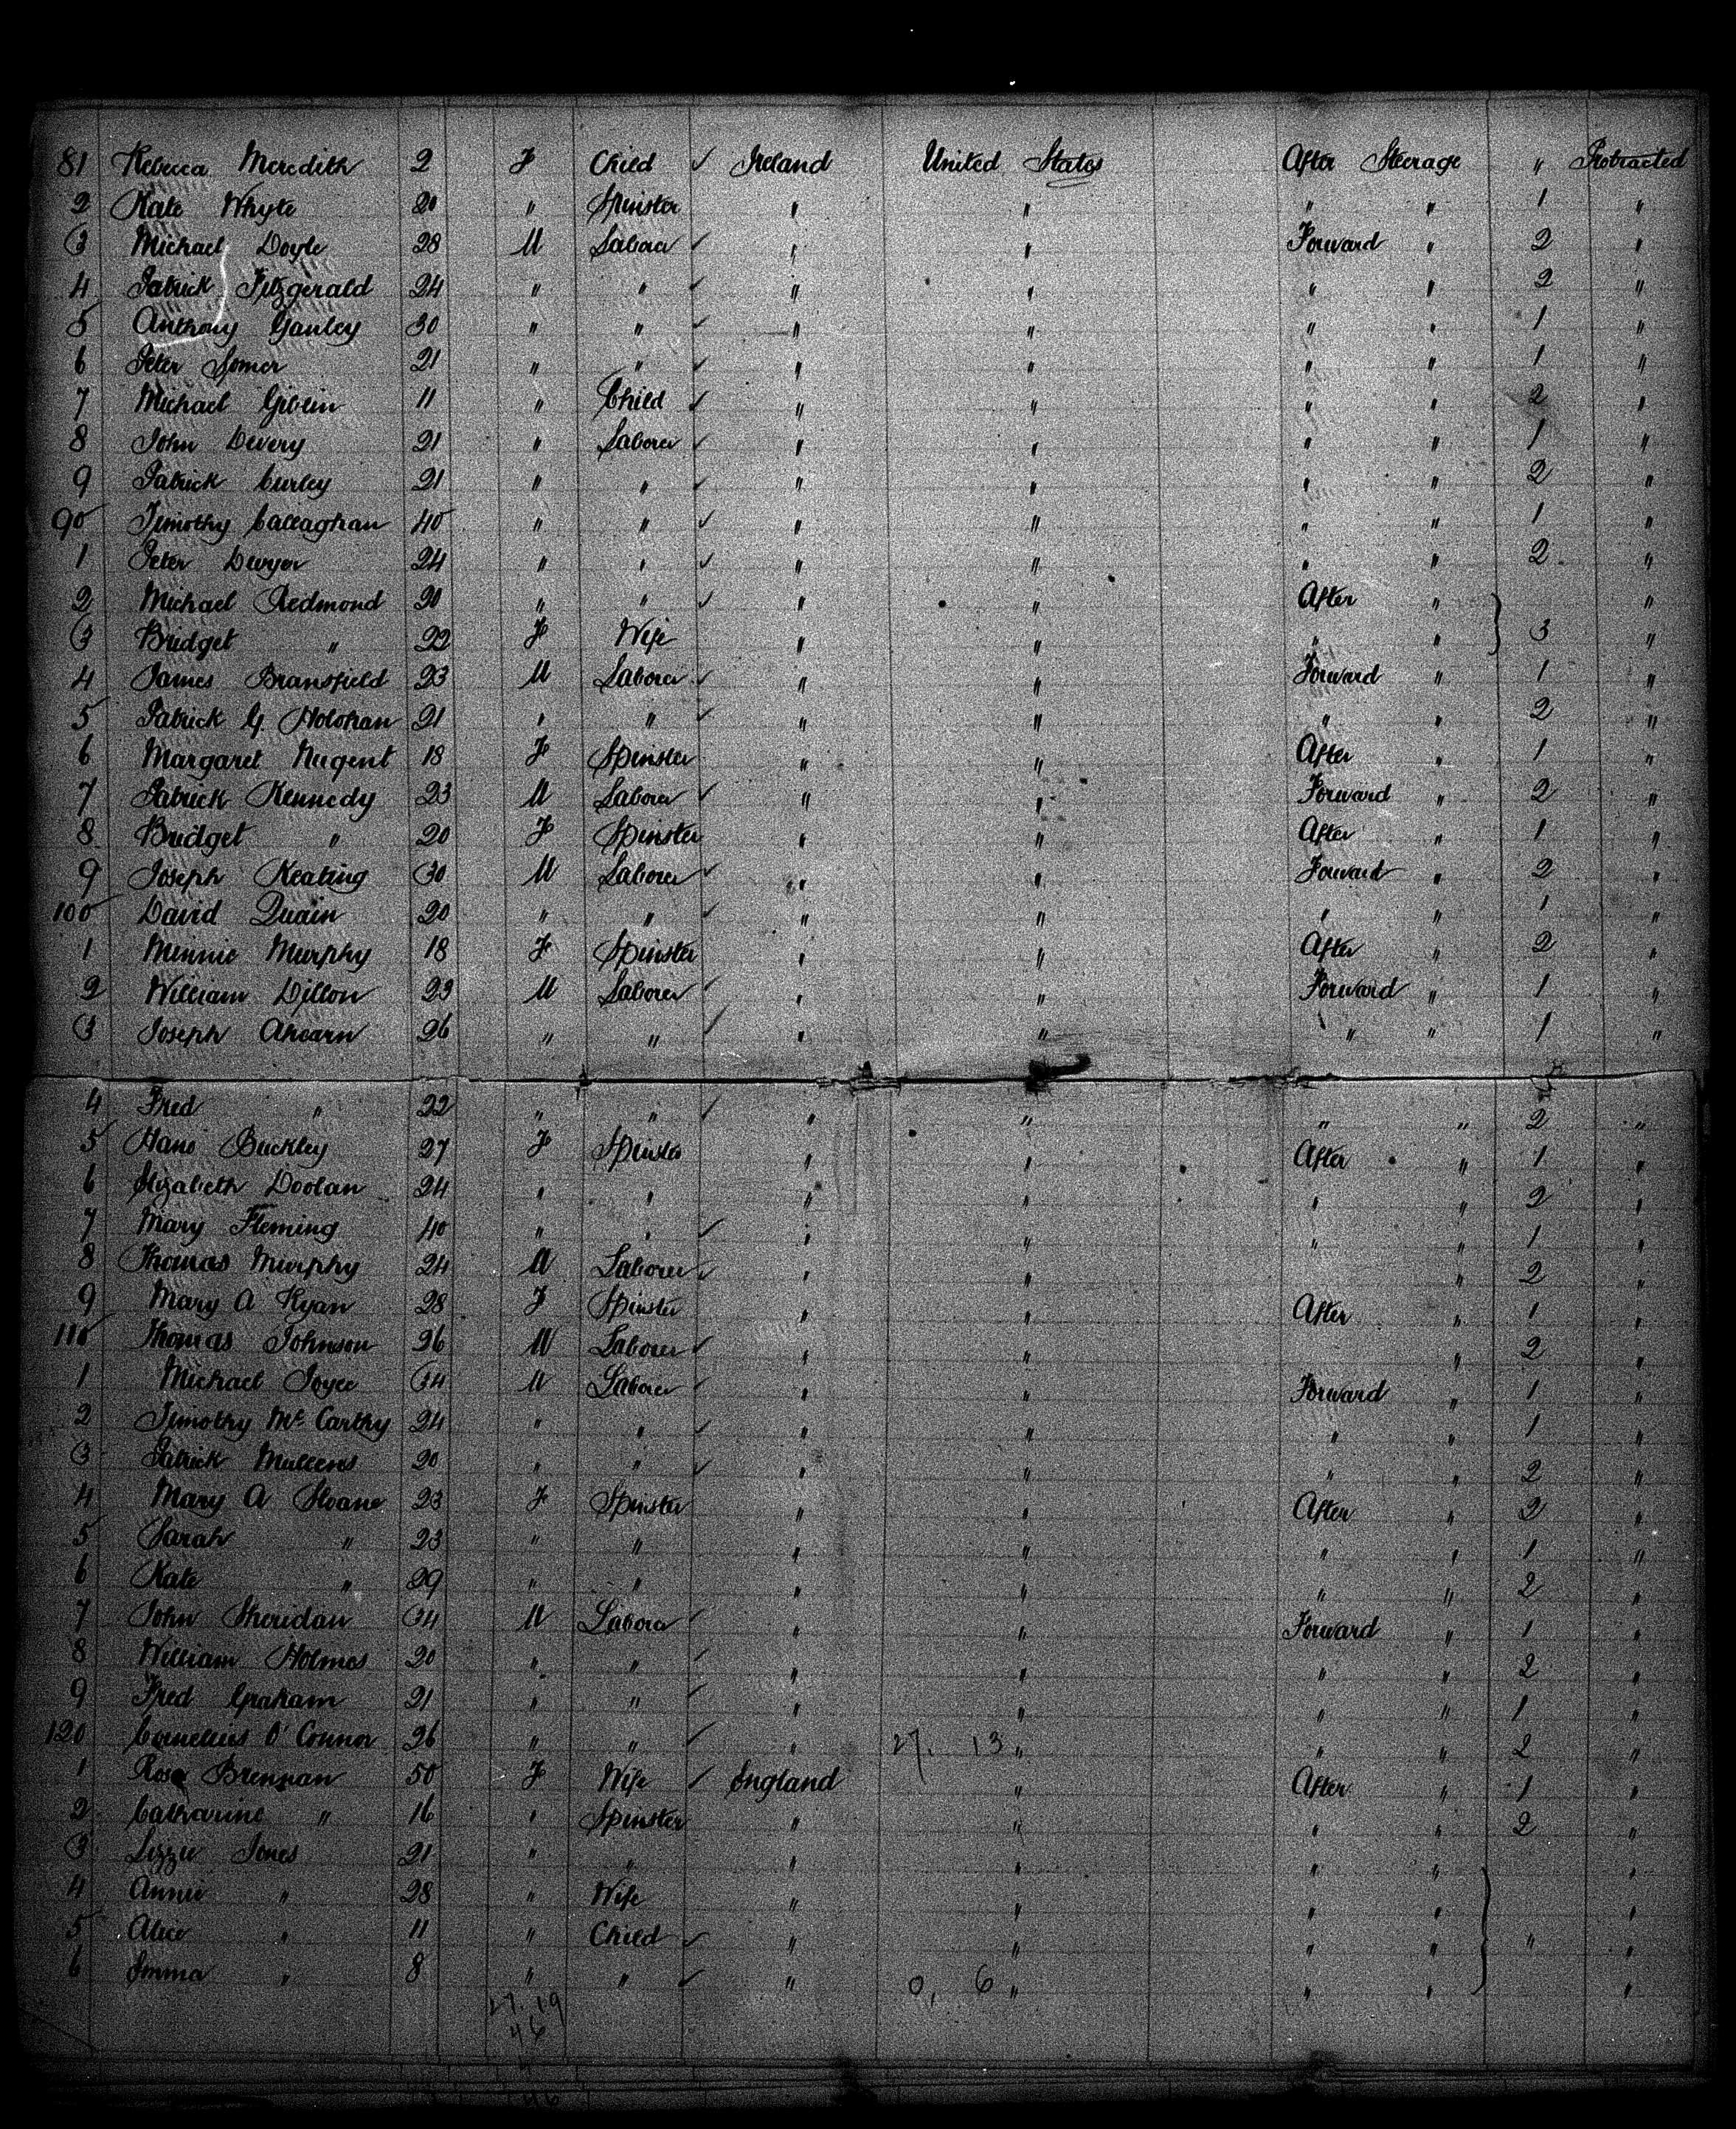 81 Rebecca Meredith 2 F Child ✓ Ireland United States After Steerage " Protracted
2 Kate Whyte 20 " Spinster " " " " 1 "
3 Michael Doyle 28 M Laborer ✓ " " Forward " 2 "
4 Patrick Fitzgerald 24 " " ✓ " " " " 2 "
5 Anthony Ganley 30 " " ✓ " " " " 1 "
6 Peter Somer 21 " " ✓ " " " " 1 "
7 Michael Giblin 11 " Child ✓ " " " " 2 "
8 John Devery 21 " Laborer ✓ " " " " 1 "
9 Patrick Curley 21 " " ✓ " " " " 2 "
90 Timothy Callaghan 40 " " ✓ " " " " 1 "
1 Peter Dwyer 24 " " ✓ " " " " 2 "
2 Michael Redmond 20 " " ✓ " " After " "
3 Bridget " 22 F Wife " " " " 3 "
4 James Bransfield 23 M Laborer ✓ " " Forward " 1 "
5 Patrick G. Holohan 21 " " ✓ " " " " 2 "
6 Margaret Nugent 18 F Spinster " " After " 1 "
7 Patrick Kennedy 23 M Laborer ✓ " " Forward " 2 "
8 Bridget " 20 F Spinster " " After " 1 "
9 Joseph Keating 30 M Laborer ✓ " " Forward " 2 "
100 David Quain 20 " " ✓ " " " " 1 "
1 Minnie Murphy 18 F Spinster " " After " 2 "
2 William Dillon 23 M Laborer ✓ " " Forward " 1 "
3 Joseph Ahearn 26 " " ✓ " " " " 1 "
4 Fred " 22 " " ✓ " " " " 2 "
5 Buckley 27 F Spinster " " After " 1 "
6 Elizabeth Doolan 24 " " " " " " 2 "
7 Mary Fleming 40 " " ✓ " " " " 1 "
8 Thomas Murphy 24 M Laborer ✓ " " " 2 "
9 Mary A Ryan 28 F Spinster " " After " 1 "
110 Thomas Johnson 26 M Laborer ✓ " " " 2 "
1 Michael Joyce 34 M Laborer ✓ " " Forward " 1 "
2 Timothy Mc Carthy 24 " " ✓ " " " " 1 "
3 Patrick Mullens 20 " " ✓ " " " " 2 "
4 Mary A Sloane 23 F Spinster " " After " 2 "
5 Sarah " 23 " " " " " " 1 "
6 Kate " 29 " " " " " " 2 "
7 John Sheridan 34 M Laborer ✓ " " Forward " 1 "
8 William Holmes 20 " " ✓ " " " " 2 "
9 Fred Graham 21 " " ✓ " " " " 1 "
120 Cornelius O'Connor 26 " " ✓ " 27. 13 " " " 2 "
1 Rose Brennan 50 F Wife ✓ England " After " 1 "
2 Catharine " 16 " Spinster " " " " 2 "
3 Lizzie Jones 21 " " " " " " "
4 Annie " 28 " Wife " " " " "
5 Alice " 11 " Child ✓ " " " " " "
6 Emma " 8 " " ✓ " 0, 6 " " " "
27. 19
46